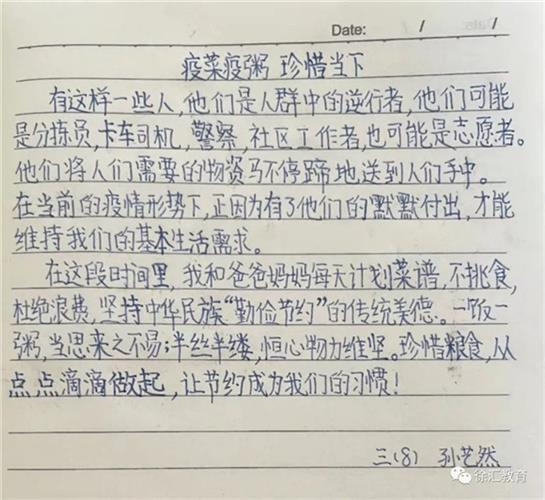 Date: / /
疫菜疫粥 珍惜当下
有这样一些人,他们是人群中的逆行者,他们可能
是分拣员,卡车司机,警察,社区工作者,也可能是志愿者。
他们将人们需要的物资马不停蹄地送到人们手中。
在当前的疫情形势下,正因为有了他们的默默付出,才能
维持我们的基本生活需求。
在这段时间里,我和爸爸妈妈每天计划菜谱,不挑食,
杜绝浪费,坚持中华民族“勤俭节约”的传统美德。一饭一
粥,当思来之不易;半丝半缕,恒心物力维坚。珍惜粮食,从
点点滴滴做起,让节约成为我们的习惯!
三(8) 孙艺然
徐汇教育